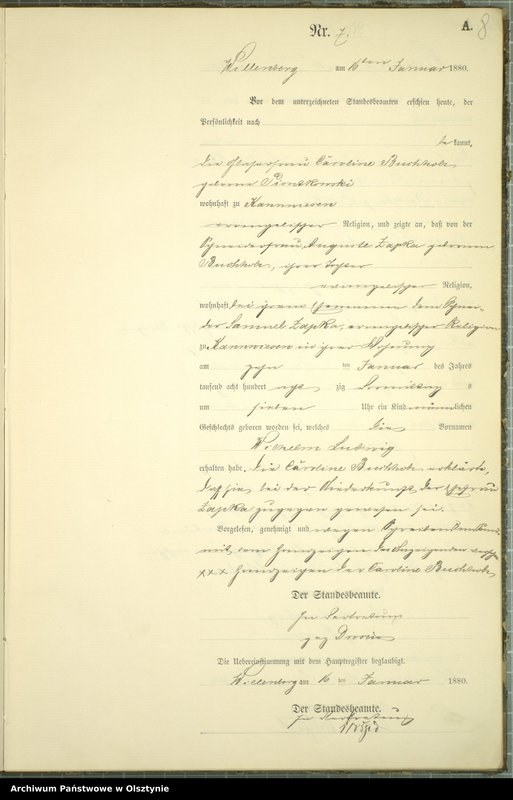 Nr. 7.
A. 8
Willenberg am 16ten Januar 1880.
Vor dem unterzeichneten Standesbeamten erschien heute, der
Persönlichkeit nach
bekannt,
die Caroline Buchholz
geborene Piontkowski
wohnhaft zu Kannwiesen
evangelischer Religion, und zeigte an, daß von der
Schneiderfrau Auguste Zapka geborenen
Buchholz, ihrer Tochter
evangelischer Religion,
wohnhaft bei ihrem Ehemanne dem Schnei-
der Samuel Zapka, evangelischer Religion
zu Kannwiesen in ihrer Wohnung
am zehn ten Januar des Jahres
tausend acht hundert acht zig Vormittag s
um sieben Uhr ein Kind männlichen
Geschlechts geboren worden sei, welches die Vornamen
Wilhelm Ludwig
erhalten habe. Die Caroline Buchholz erklärte,
daß sie bei der Niederkunft der Ehefrau
Zapka zugegen gewesen sei.
Vorgelesen, genehmigt und wegen
mit dem Handzeichen der
xxx Handzeichen der Caroline Buchholz
Der Standesbeamte.
In Vertretung
gez
Die Uebereinstimmung mit dem Hauptregister beglaubigt.
Willenberg am 16 ten Januar 1880.
Der Standesbeamte.
In Vertretung
Archiwum Państwowe w Olsztynie